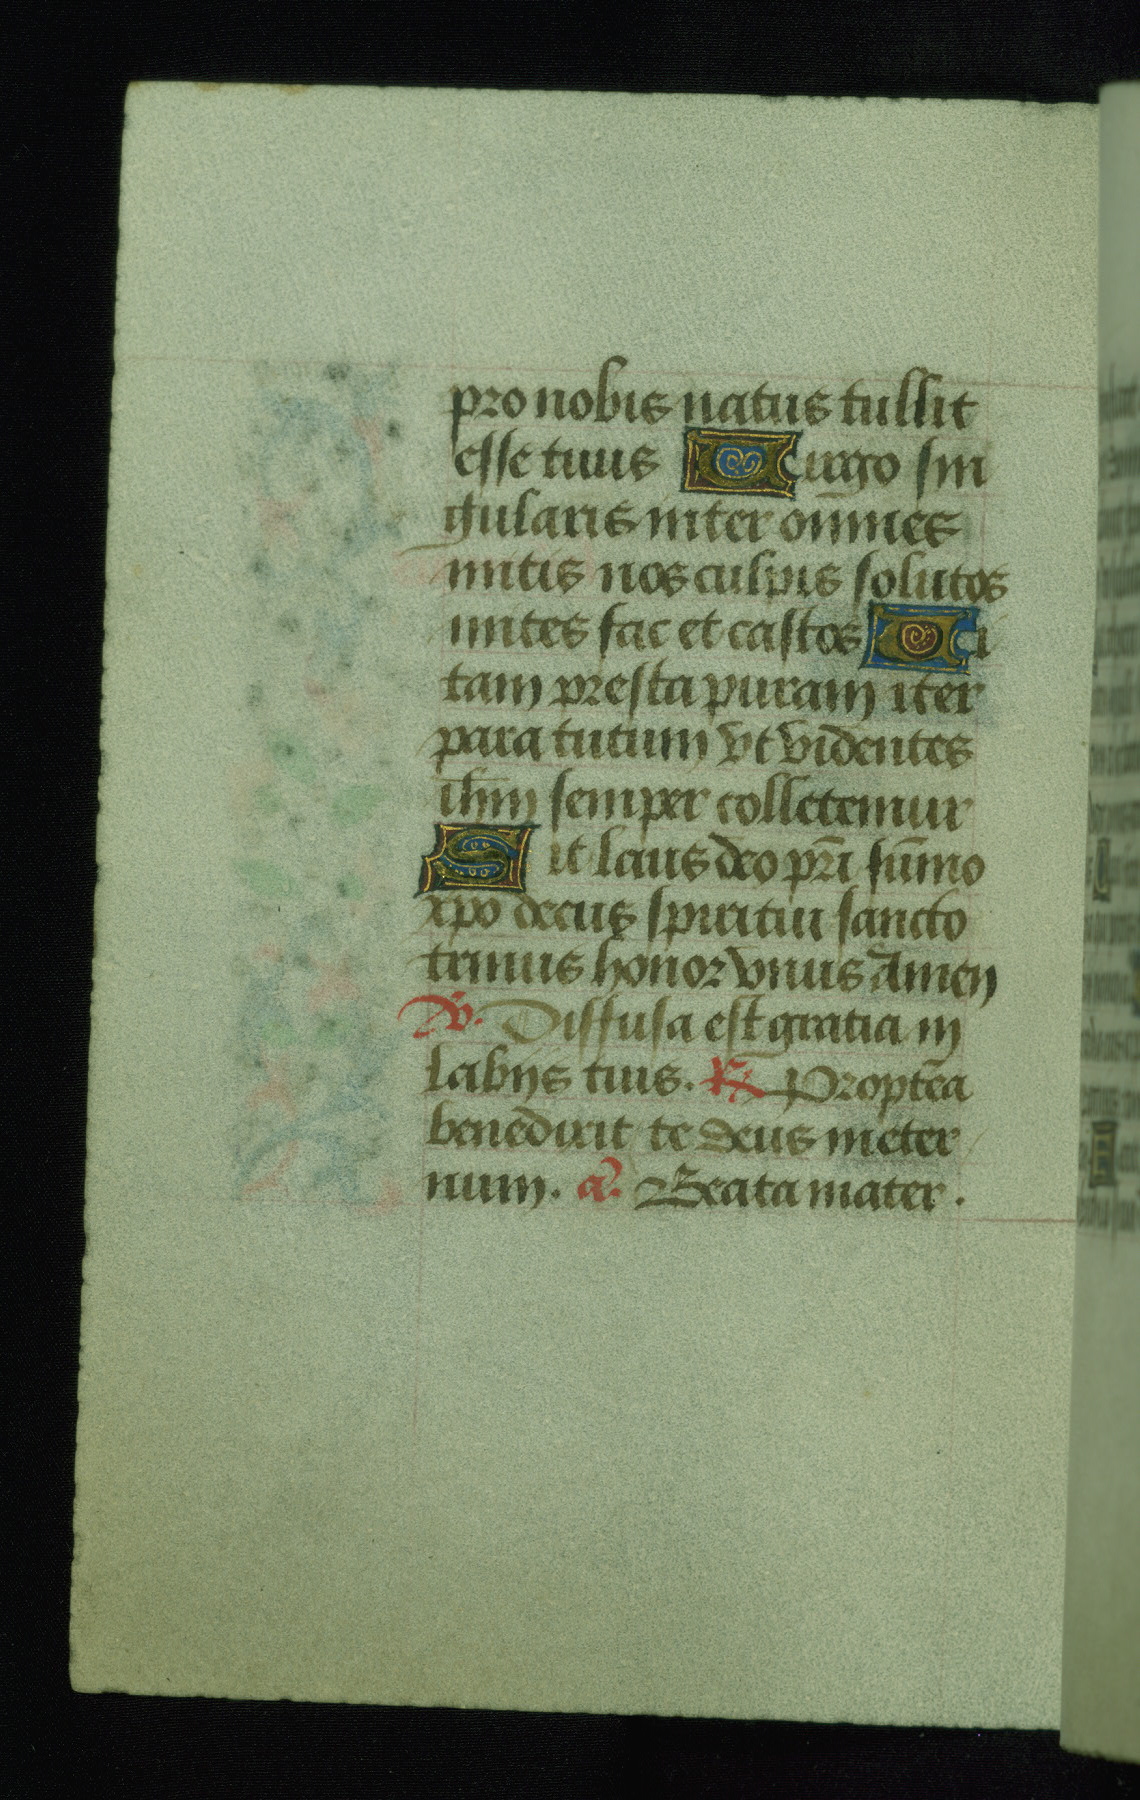 pro nobis natus tullit
esse tuus Virgo sin
gularis inter om̄nes
mitis nos culpis solutos
mites fac et castos Vi
tam presta puram iter
para tutum vt videntes
ih̄m semper colletemur
Sit laus deo pr̄i sūmo
xpo decus spiritui sancto
trinus honor vnus Amen
V̓. Diffusa est gratia in
labijs tuis. ℟ Propt̄ea
benedixit te deus in eter
num. a. Beata mater.